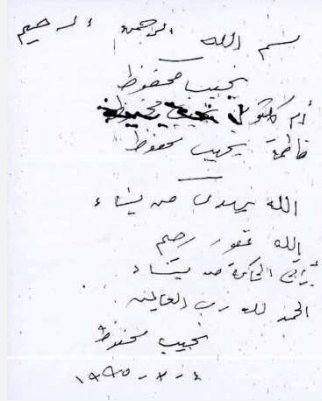 بسم الله الرحمن الرحيم
نجيب محفوظ
أم كلثوم نجيب محفوظ
فاطمة نجيب محفوظ
الله يهدى من يشاء
الله غفور رحيم
يؤتى الحكمة من يشاء
الحمد لله رب العالمين
نجيب محفوظ